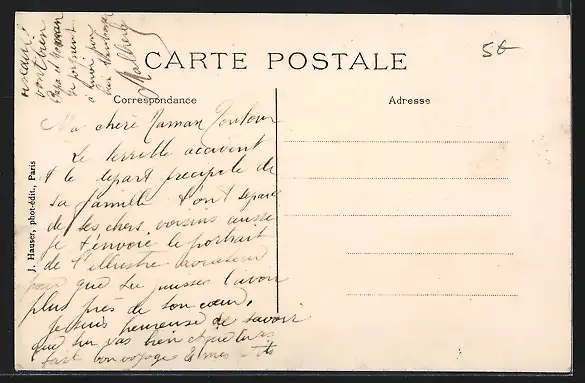 5€
CARTE POSTALE
Correspondance
Adresse
J. Hauser, phot.-édit., Paris
Ma chère Maman
Le terrible accident
& le depart précipité de
sa famille t'ont separée
de tes chers voisins aussi
je t'envoie le portrait
de l'illustre aviateur
pour que tu puisses l'avoir
plus près de ton cœur.
Je suis heureuse de savoir
que tu vas bien et que tu as
fait bon voyage
vont bien
Papa et maman
se joignent
à moi pour